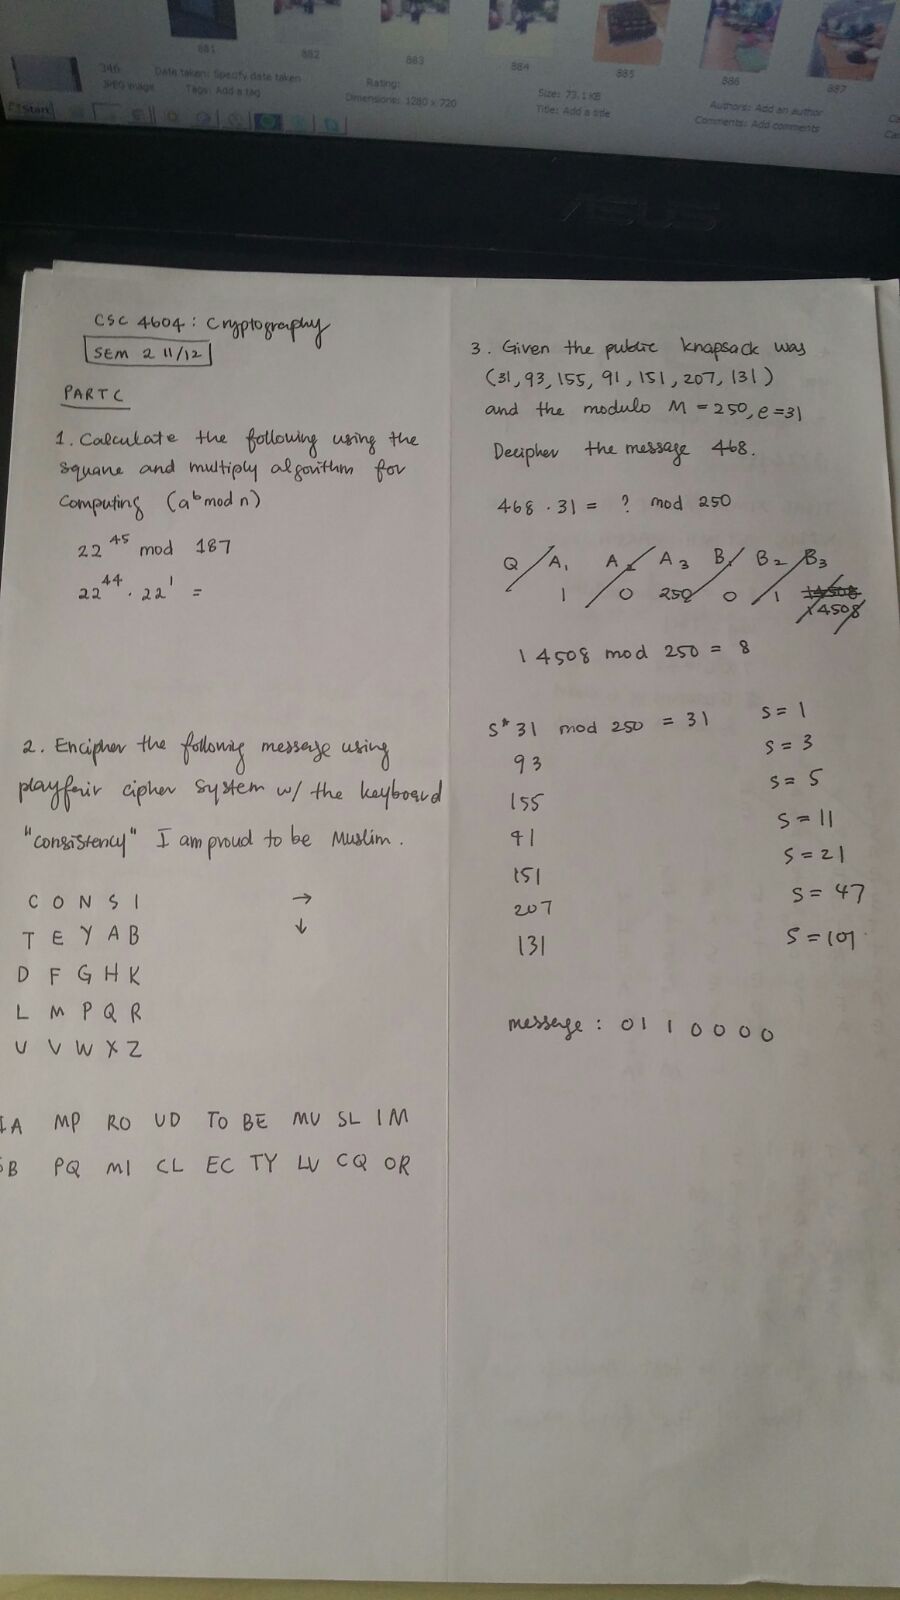 881
882
883
884
885
886
887
346
JPEG image
Date taken: Specify date taken
Tags: Add a tag
Rating:
Dimensions: 1280 x 720
Size: 73.1 KB
Title: Add a title
Authors: Add an author
Comments: Add comments
Start
ASUS
CSC 4604 : Cryptography
SEM 2 11/12
PART C
1. Calculate the following using the
square and multiply algorithm for
computing (a^b mod n)
22^45 mod 187
22^44 . 22^1 =
2. Encipher the following message using
playfair cipher system w/ the keyboard
"consistency" I am proud to be Muslim.
C O N S I →
T E Y A B ↓
D F G H K
L M P Q R
U V W X Z
IA MP RO UD TO BE MU SL IM
SB PQ MI CL EC TY LV CQ OR
3. Given the public knapsack was
(31, 93, 155, 91, 151, 207, 131)
and the modulo M = 250, e = 31
Decipher the message 468.
468 . 31 = ? mod 250
Q A1 A2 A3 B1 B2 B3
1 0 250 0 1 14508
14508
14508 mod 250 = 8
S* 31 mod 250 = 31 S = 1
93 S = 3
155 S = 5
91 S = 11
151 S = 21
207 S = 47
131 S = 101
message : 0 1 1 0 0 0 0